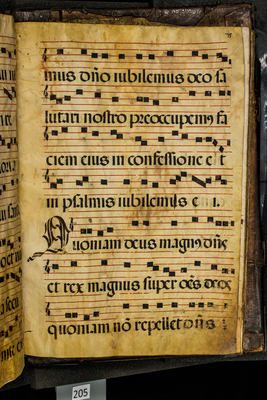 mus dño iubilemus deo sa
lutari nostro preoccupemꝰ fa
ciem eius in confessione et
in psalmis iubilemus ei.
Quoniam deus magnꝰ dñs
et rex magnus super oẽs deos
quoniam nõ repellet dñs
205